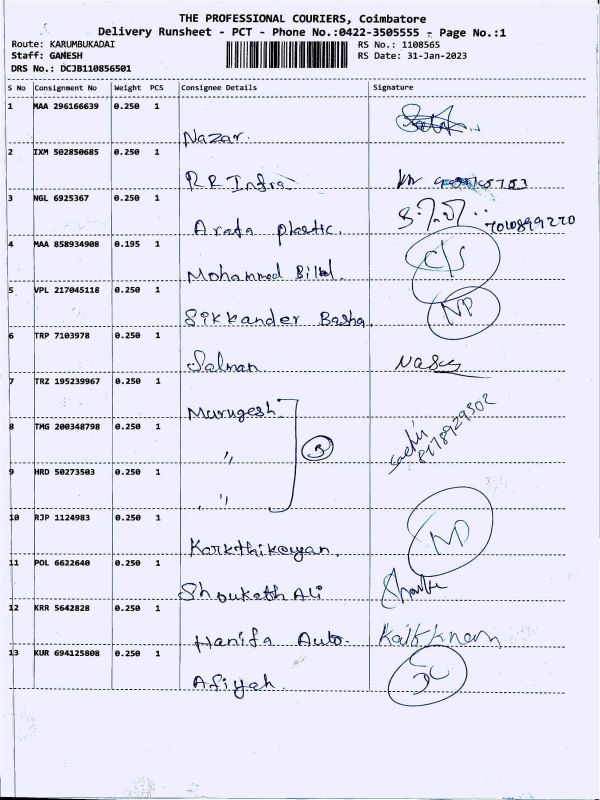 THE PROFESSIONAL COURIERS, Coimbatore
Delivery Runsheet - PCT - Phone No.:0422-3505555 - Page No.:1
Route: KARUMBUKADAI RS No.: 1108565
Staff: GANESH RS Date: 31-Jan-2023
DRS No.: DCJB110856501
S No Consignment No Weight PCS Consignee Details Signature
1 MAA 296166639 0.250 1
Nazar.
2 IXM 502850685 0.250 1
RR Infra
3 NGL 6925367 0.250 1
Arafa plastic. 7010899270
4 MAA 858934908 0.195 1 C/S
Mohammed Billal.
5 VPL 217045118 0.250 1 NP
Sikkander Basha.
6 TRP 7103978 0.250 1
Salman
7 TRZ 195239967 0.250 1
Murugesh
8 TMG 200348798 0.250 1 3 8178929502
"
9 HRD 50273503 0.250 1
"
10 RJP 1124983 0.250 1 NP
Karkthikeyan.
11 POL 6622640 0.250 1
Shoukath Ali
12 KRR 5642828 0.250 1
Hanifa Auto.
13 KUR 694125808 0.250 1 DC
Afiyah.